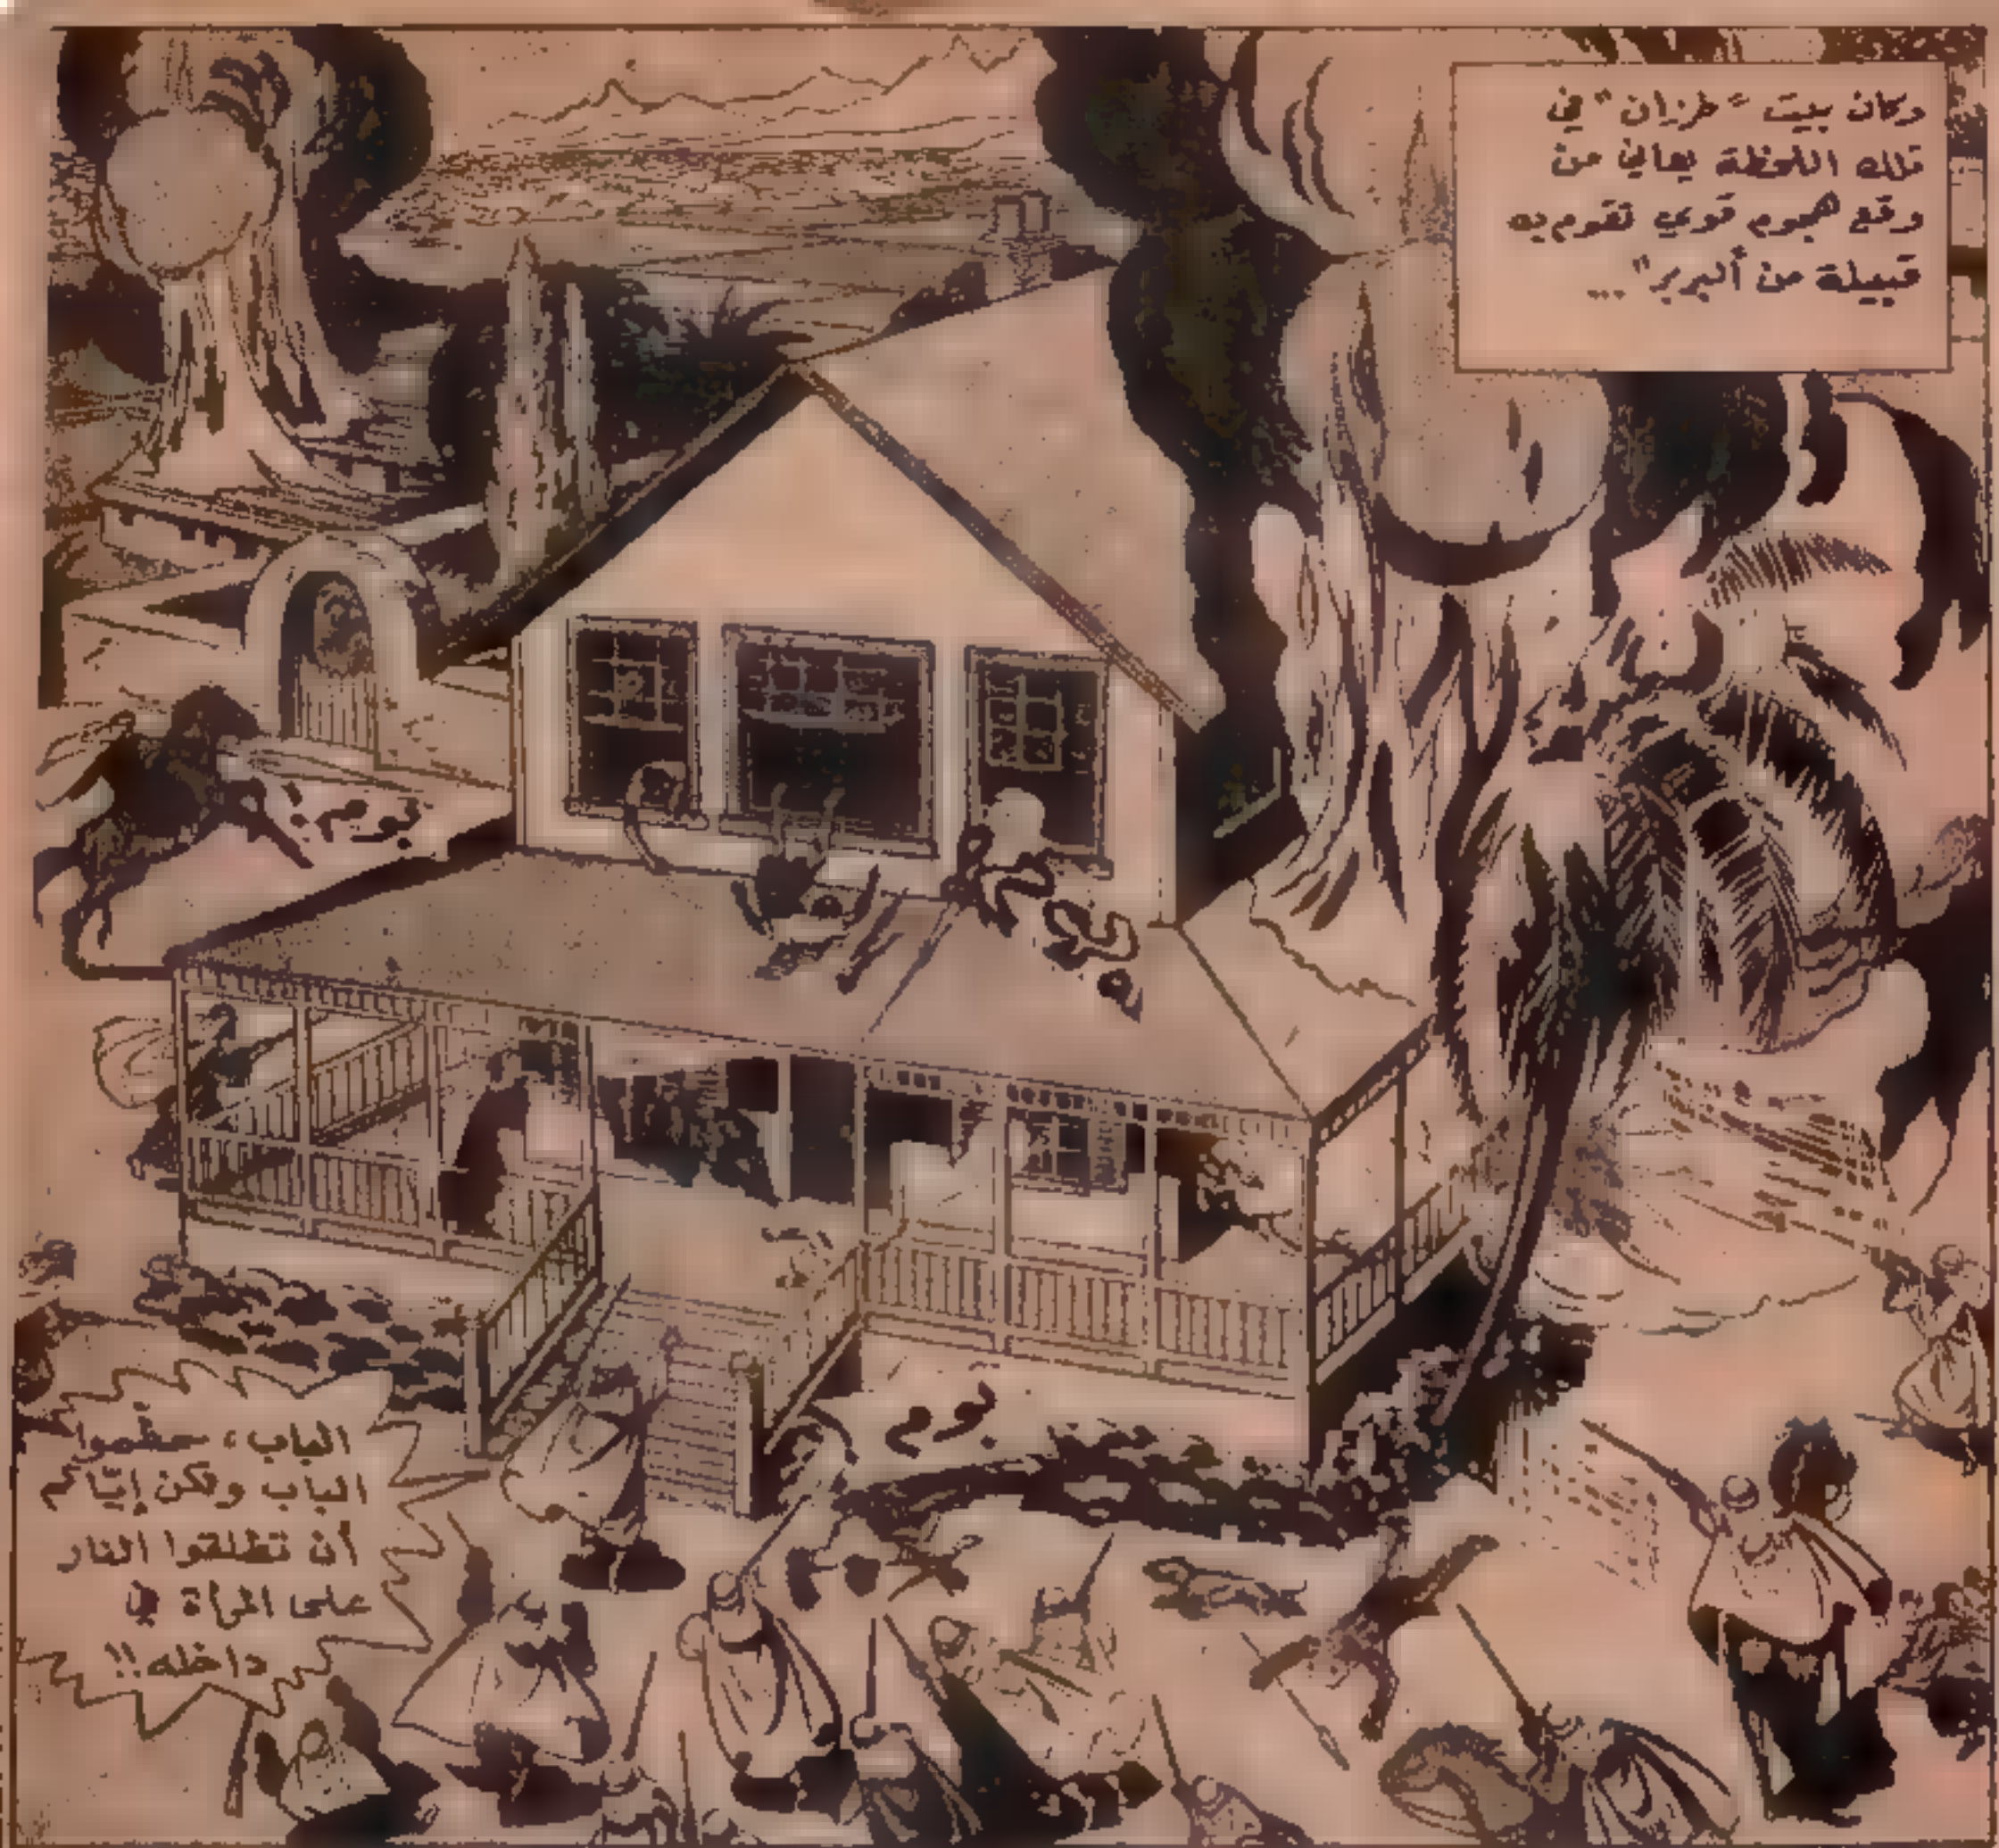 وكان بيت "طرزان" في
تلك اللحظة يعاني من
وقع هجوم قوي تقوم به
قبيلة من "البربر"...
بوم
بوم
الباب، حطموا
الباب ولكن إيّاكم
أن تطلقوا النار
على المرأة في
داخله!!